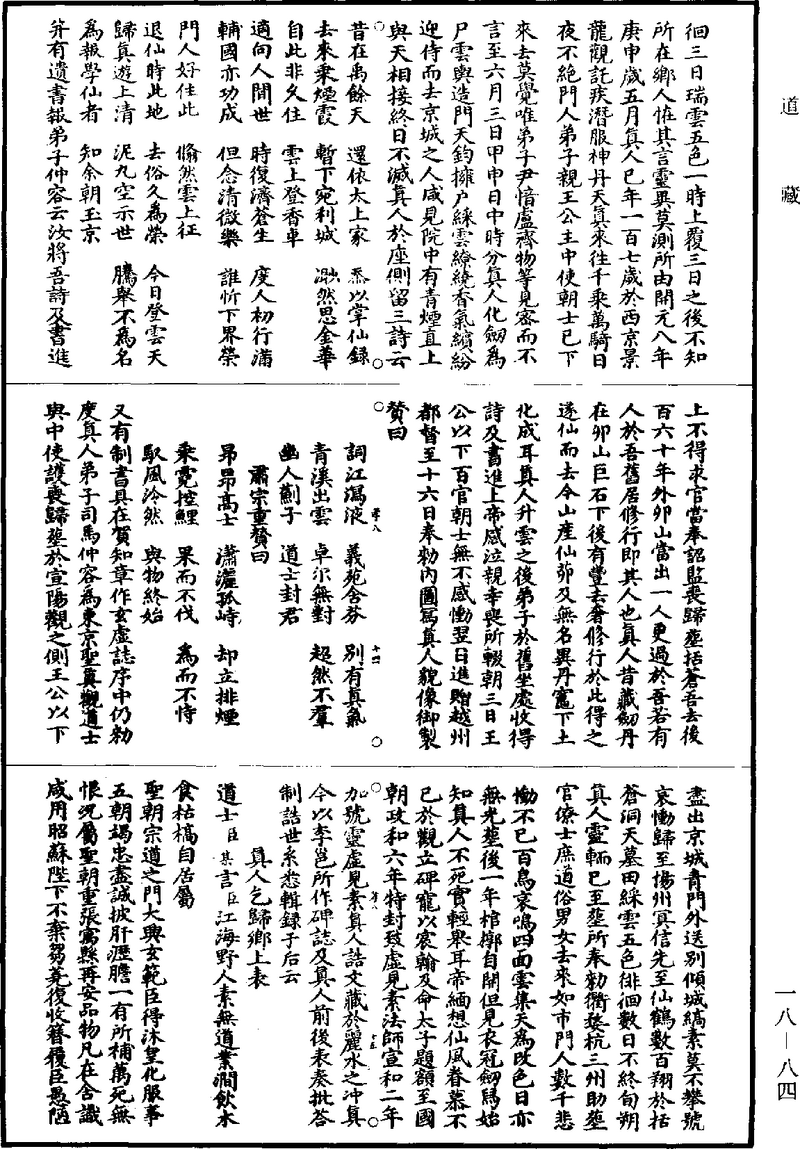 道藏
徊三日瑞雲五色一時上覆三日之後不知
所在鄉人恠其言靈異莫測所由開元八年
庚申歲五月真人已年一百七歲於西京景
龍觀託疾潛服神丹天真來往千乘萬騎日
夜不絕門人弟子親王公主中使朝士已下
來去莫覺唯弟子尹愔盧齊物等見密而不
言至六月三日甲申日中時分真人化劒為
尸雲輿造門天鈞擁户綵雲繚繞香氣繽紛
迎侍而去京城之人咸見院中有青煙直上
與天相接終日不滅真人於座側留三詩云
昔在禹餘天 還依太上家 忝以掌仙錄
去來乘煙霞 暫下宛利城 渺然思金華
自此非久住 雲上登香車
適向人間世 時復濟蒼生 度人初行滿
輔國亦功成 但念清微樂 誰忻下界榮
門人好住此 翛然雲上征
退仙時此地 去俗久為榮 今日登雲天
歸真遊上清 泥丸空示世 騰舉不為名
為報學仙者 知余朝玉京
并有遺書報弟子仲容云汝將吾詩及書進
上不得求官當奉詔監喪歸塟括蒼吾去後
百六十年外卯山當出一人更過於吾若有
人於吾舊居修行即其人也真人昔藏劒丹
在卯山巨石下後有豐去奢修行於此得之
遂仙而去今山産仙茆及無名異丹竈下土
化成耳真人升雲之後弟子於舊坐處收得
詩及書進上帝感泣親幸喪所輟朝三日王
公以下百官朝士無不感慟翌日進贈越州
都督至十六日奉勑內圖寫真人貌像御製
贊曰
詞江瀉液 義苑含芬 別有真氣
青溪出雲 卓尔無對 超然不羣
幽人薊子 道士封君
肅宗重贊曰
昂昂高士 瀟灑孤峙 却立排煙
乘霓控鯉 果而不伐 為而不恃
馭風泠然 與物終始
又有制書具在賀知章作玄虛誌序中仍勑
度真人弟子司馬仲容為東京聖真觀道士
與中使護喪歸塟於宣陽觀之側王公以下
盡出京城青門外送別傾城縞素莫不攀號
哀慟歸至揚州冥信先至仙鶴數百翔於括
蒼洞天墓田綵雲五色徘徊數日不終旬朔
真人靈輀已至塟所奉勑衢婺杭三州助塟
官僚士庶道俗男女去來如市門人數千悲
慟不已百鳥哀鳴四面雲集天為改色日亦
無光塟後一年棺槨自開但見衣冠劒舄始
知真人不死實輕舉耳帝緬想仙風眷慕不
已於觀立碑寵以宸翰及命太子題額至國
朝政和六年特封致虛見素法師宣和二年
加號靈虛見素真人誥文藏於麗水之冲真
今以李邕所作碑誌及真人前後表奏批荅
制誥世系悉輯録于后云
真人乞歸鄉上表
道士臣某言臣江海野人素無道業澗飲木
食枯槁自居屬
聖朝宗道之門大興玄範臣得沐皇化服事
五朝竭忠盡誠披肝瀝膽一有所補萬死無
恨況屬聖朝重張寓縣再安品物凡在含識
咸用昭蘇陛下不棄芻蕘復收簪履臣愚陋
一八—八四